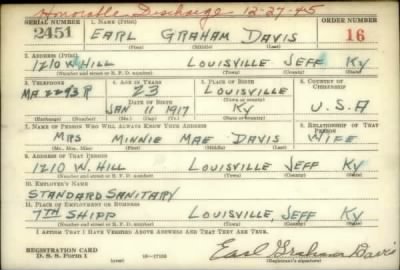 Honorable Discharge 12-27-45
SERIAL NUMBER 1. NAME (Print) ORDER NUMBER
2451 EARL GRAHAM DAVIS 16
(First) (Middle) (Last)
2. ADDRESS (Print)
1210 W. HILL LOUISVILLE JEFF KY
(Number and street or R. F. D. number) (Town) (County) (State)
3. TELEPHONE 4. AGE IN YEARS 5. PLACE OF BIRTH 6. COUNTRY OF CITIZENSHIP
MA 2293R 23 LOUISVILLE
DATE OF BIRTH (Town or county)
JAN 11 1917 KY U.S.A
(Exchange) (Number) (Mo.) (Day) (Yr.) (State or country)
7. NAME OF PERSON WHO WILL ALWAYS KNOW YOUR ADDRESS 8. RELATIONSHIP OF THAT PERSON
MRS MINNIE MAE DAVIS WIFE
(Mr., Mrs., Miss) (First) (Middle) (Last)
9. ADDRESS OF THAT PERSON
1210 W. HILL LOUISVILLE JEFF KY
(Number and street or R. F. D. number) (Town) (County) (State)
10. EMPLOYER'S NAME
STANDARD SANITARY
11. PLACE OF EMPLOYMENT OR BUSINESS
7TH SHIPP LOUISVILLE, JEFF KY
(Number and street or R. F. D. number) (Town) (County) (State)
I AFFIRM THAT I HAVE VERIFIED ABOVE ANSWERS AND THAT THEY ARE TRUE.
REGISTRATION CARD
D. S. S. Form 1 (over) Earl Graham Davis
(Registrant's signature)